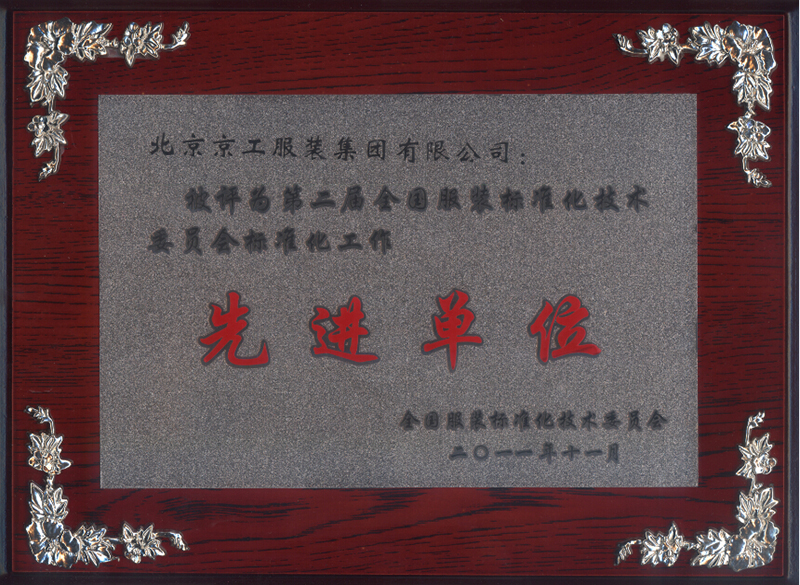 北京京工服装集团有限公司：
被评为第二届全国服装标准化技术
委员会标准化工作
先进单位
全国服装标准化技术委员会
二〇一一年十一月